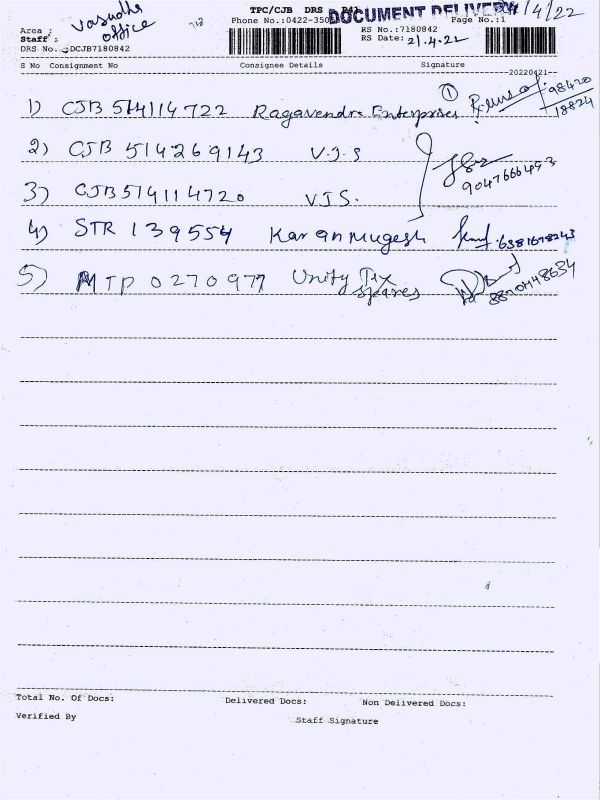 TPC/CJB DRS
DOCUMENT DELIVERY
/4/22
Area :
Vasudha
office
713
Phone No.:0422-350
Page No.:1
Staff :
RS No.:7180842
DRS No. :DCJB7180842
RS Date: 21.4.22
S No Consignment No Consignee Details Signature
20220421
1) CJB 514114722 Ragavendra Enterprises ① 98420
18824
2) CJB 514269143 V.J.S
9047666453
3) CJB 514114720 VJS.
4) STR 139554 Karan Mugesh 6381678243
5) MTP 0270977 Unity Tex
Spares
Total No. Of Docs: Delivered Docs: Non Delivered Docs:
Verified By
Staff Signature